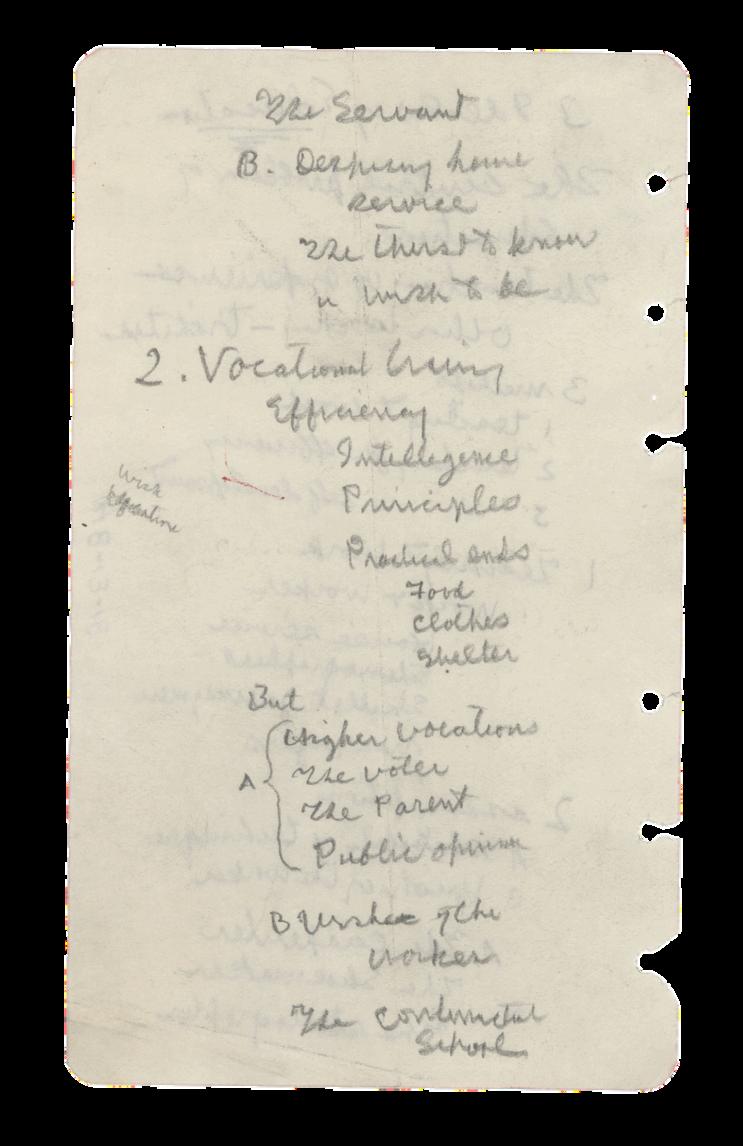 The Servant
B. Despising home
service
The thirst to know
" wish to be
2. Vocational training
Efficiency
Intelligence
Principles
Wish
Practical ends
Food
Clothes
Shelter
But
Higher Vocations
The voter
A
The Parent
Public opinion
B of the
worker
The
School